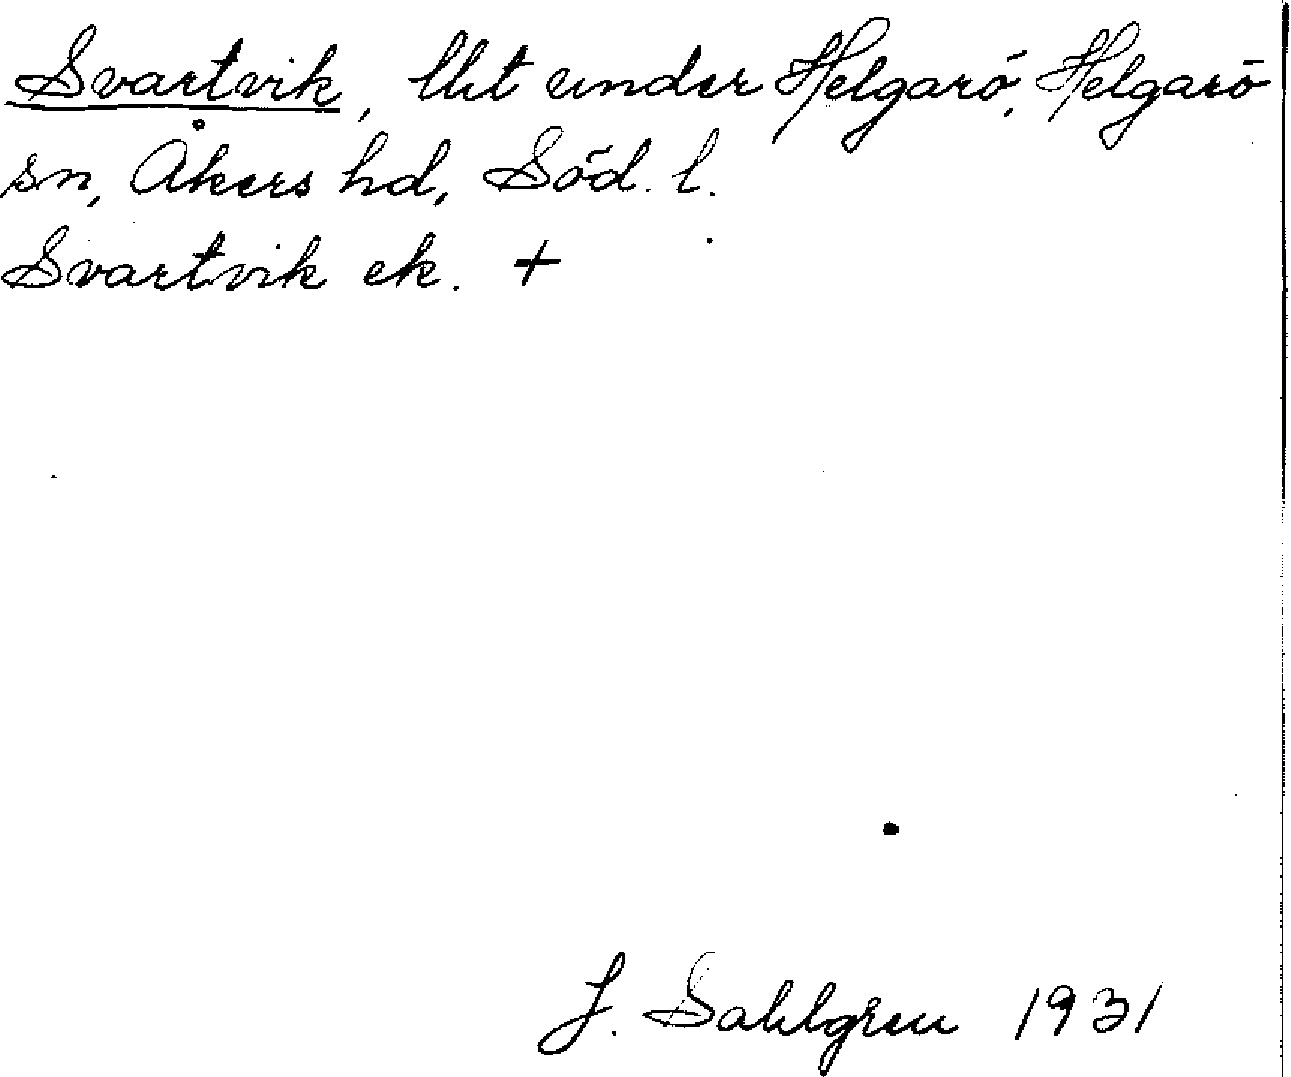 Svartvik, lht under Helgarö, Helgarö
sn, Åkers hd, Söd. l.
Svartvik ek. +
J. Sahlgren 1931